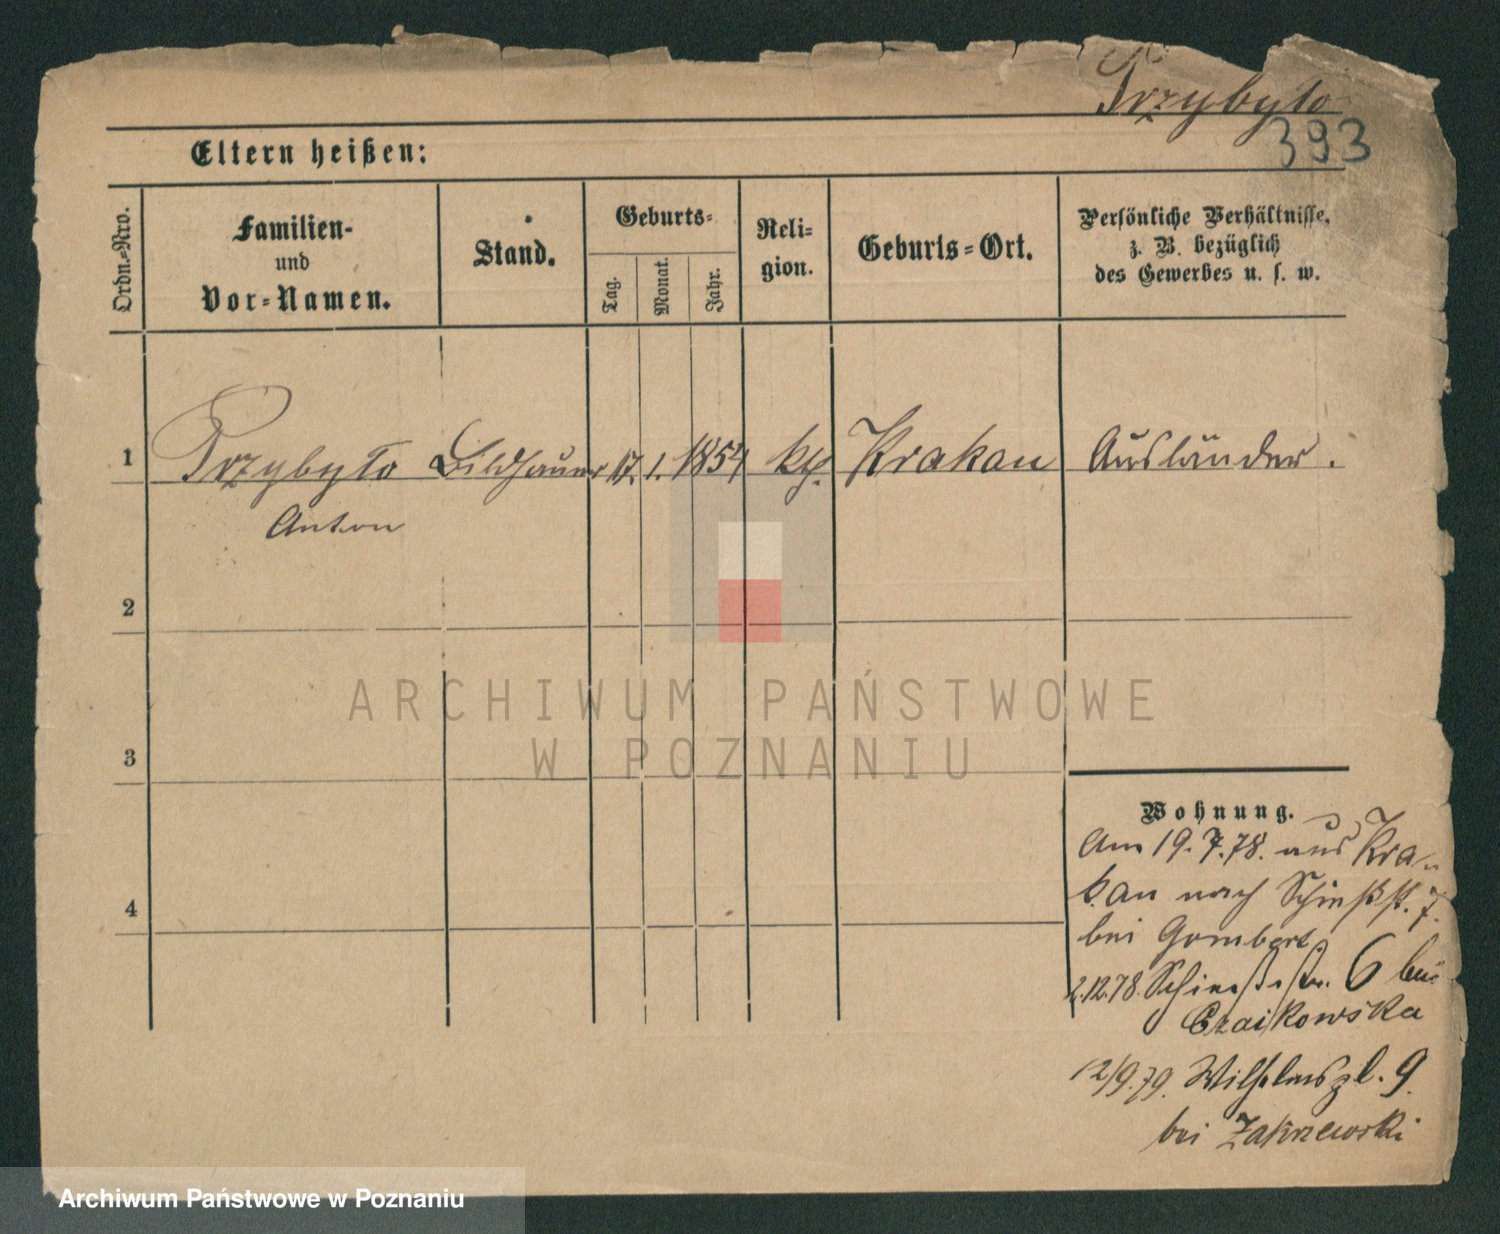 Przybyło
393
Eltern heißen:
Ordn.-Nro.
Familien-
und
Vor-Namen.
Stand.
Geburts-
Tag.
Monat.
Jahr.
Reli-
gion.
Geburts-Ort.
Persönliche Verhältnisse,
z. B. bezüglich
des Gewerbes u. s. w.
1 Przybyło Bildhauer 17. 1. 1854 kth. Krakau Ausländer.
Anton
2
3
4
Wohnung.
Am 19.7.78. aus Kra-
kau nach Schießst. 7.
bei Gombert.
2.12.78. Schießstr. 6 bei
Czaikowska
12/9.79. Wilhelmspl. 9.
bei Zakrzewski
ARCHIWUM PAŃSTWOWE
W POZNANIU
Archiwum Państwowe w Poznaniu